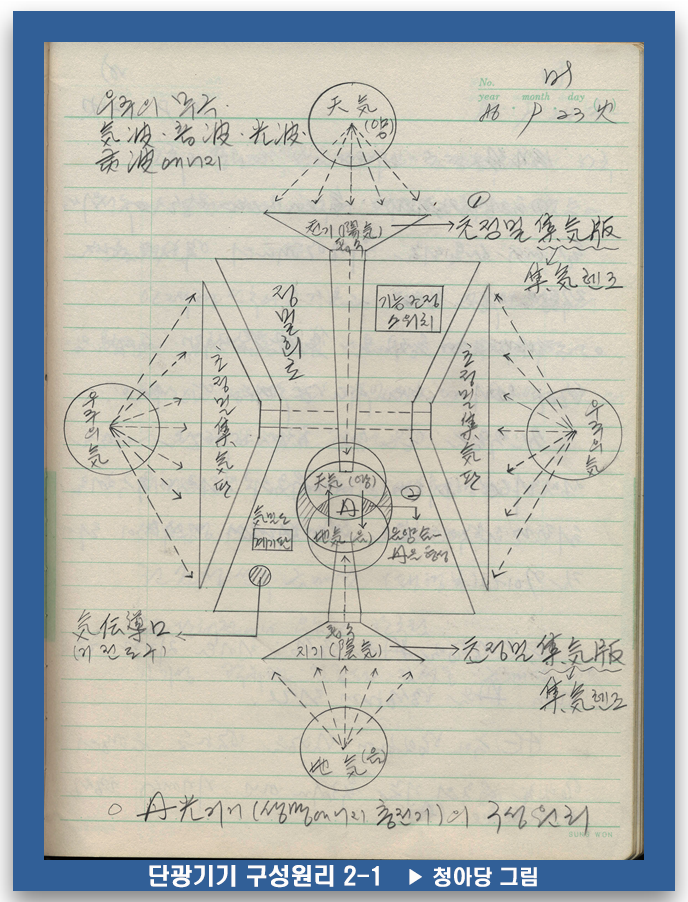 No.
year month day
86 · 9 · 23 火
우주의 무수
気波·音波·光波·
天気
(양)
①
천기(陽気)
흡수
초정밀 集気版
集気렌즈
정밀회로
기능조정
스위치
초정밀集気판
초정밀集気판
우주의気
우주의気
天気(양)
A
地気(음)
②
気밀도
계기판
気伝導口
(기전도구)
흡수
지기(陰気)
초정밀 集気版
集気렌즈
地気(음)
○ A光기기(생명에너지 충전기)의 구성원리
단광기기 구성원리 2-1 ▶ 청아당 그림